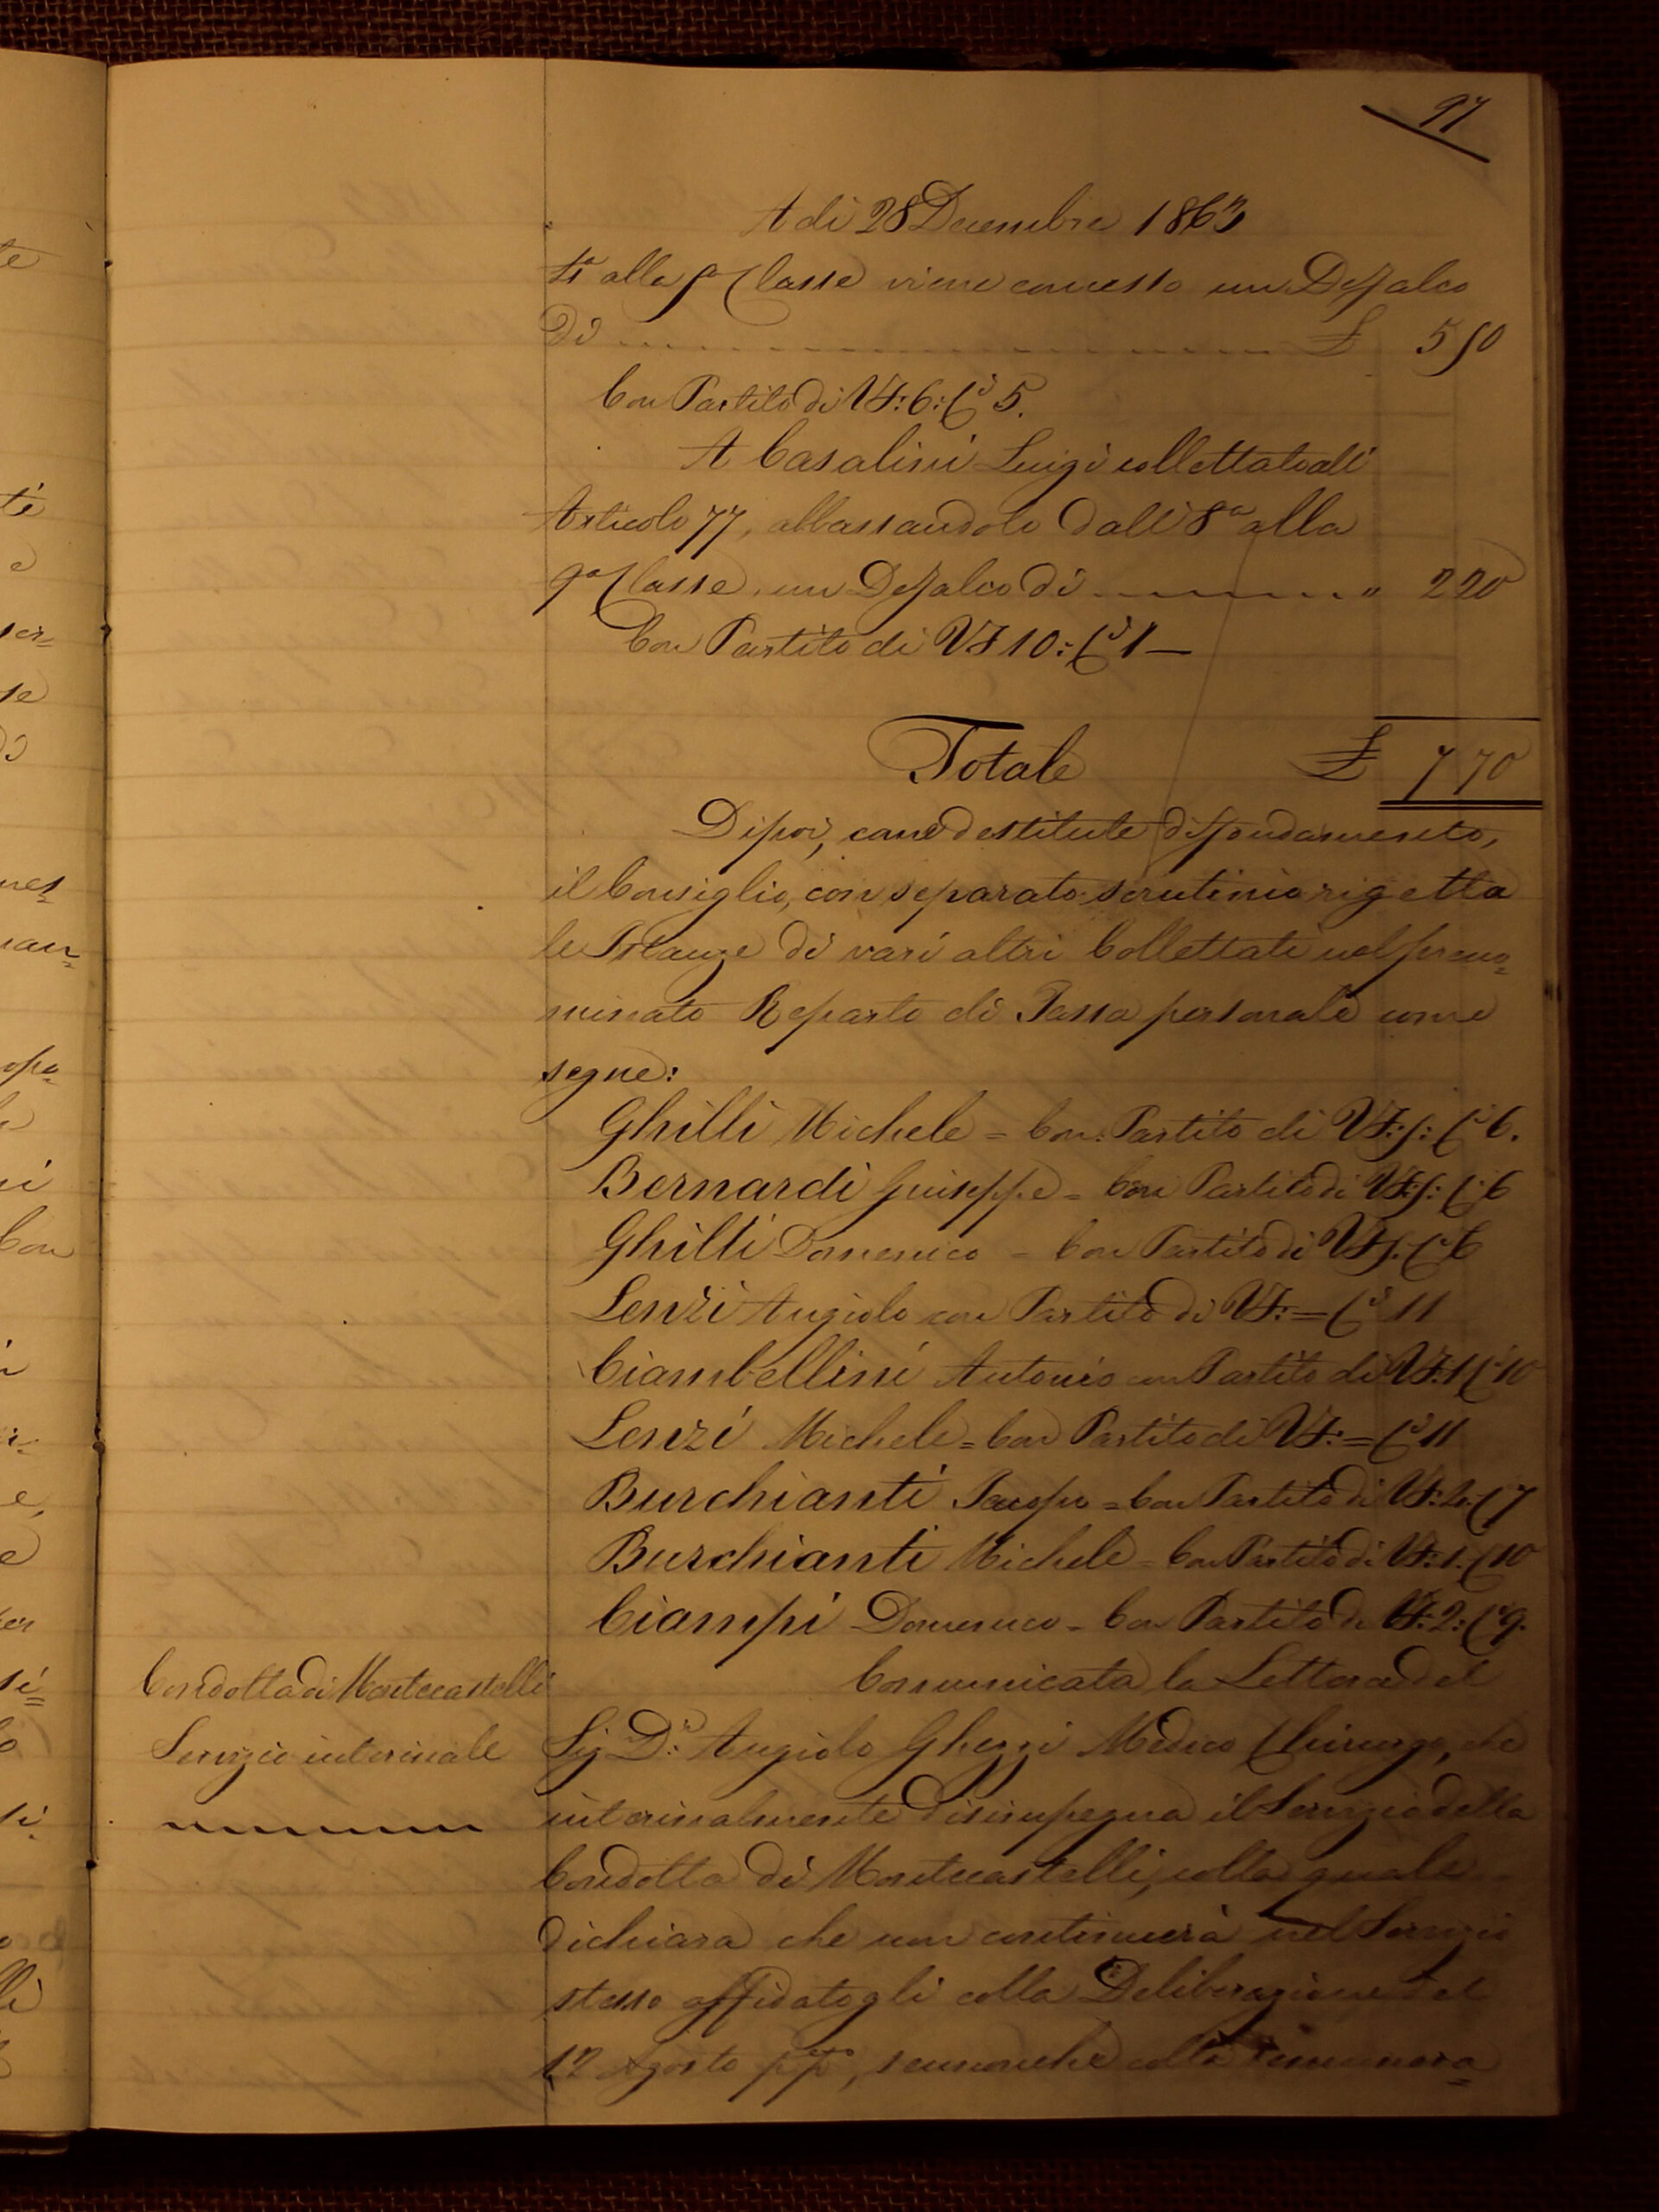 97
A di 28 Decembre 1863
ta alla 5a Classe viene concesso un Deffalco
di £ 550
Con Partito di Vf: 6: Ci 5.
A Casalini Luigi collettato all'
Articolo 77, abbassandolo dall' 8a alla
9a Classe, un Deffalco di " 220
Con Partito di Vf 10: Ci 1 —
Totale £ 770
Dipoi, come destitute di fondamento,
il Consiglio, con separato scrutinio rigetta
le Istanze di vari altri Collettati nel preno=
minato Reparto di Tassa personale come
segue:
Ghilli Michele = Con: Partito di Vf: 5: Ci 6.
Bernardi Guiseppe = Con Partito di Vf: 5: Ci 6
Ghilli Domenico = Con Partito di Vf 5: Ci 6
Lenzi Angiolo con Partito di Vf: = Ci 11
Ciambellini Antonio con Partito di Vf: 1 Ci 10
Lenzi Michele = Con Partito di Vf: = Ci 11
Burchianti Jacopo = Con Partito di Vf: 4: Ci 7
Burchianti Michele = Con Partito di Vf: 1. Ci 10
Ciampi Domenico = Con Partito di Vf: 2: Ci 9.
Condotta di Montecastelli
Servizio interinale
Comunicata la Lettera del
Sig Dr: Angiolo Ghezzi Medico Chirurgo, che
interinalmente disimpegna il Servizio della
Condotta di Montecastelli, colla quale
dichiara che non continuerà nel Servizio
stesso affidatogli colla Deliberazione del
12 Agosto ppto, sennonchè colla rimunera=